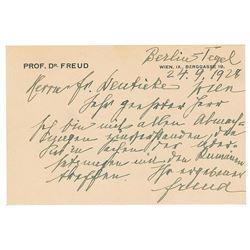 PROF. DR. FREUD
WIEN, IX., BERGGASSE 19.
Berlin Tegel
24.9.1928
Herrn Fr. Deuticke Wien
Sehr geehrter Herr
Ich bin mit allen Abmach-
ungen einverstanden, die
Sie in Sachen der Über-
setzungen mit den Rumänen
treffen.
Ihr ergebener
Freud